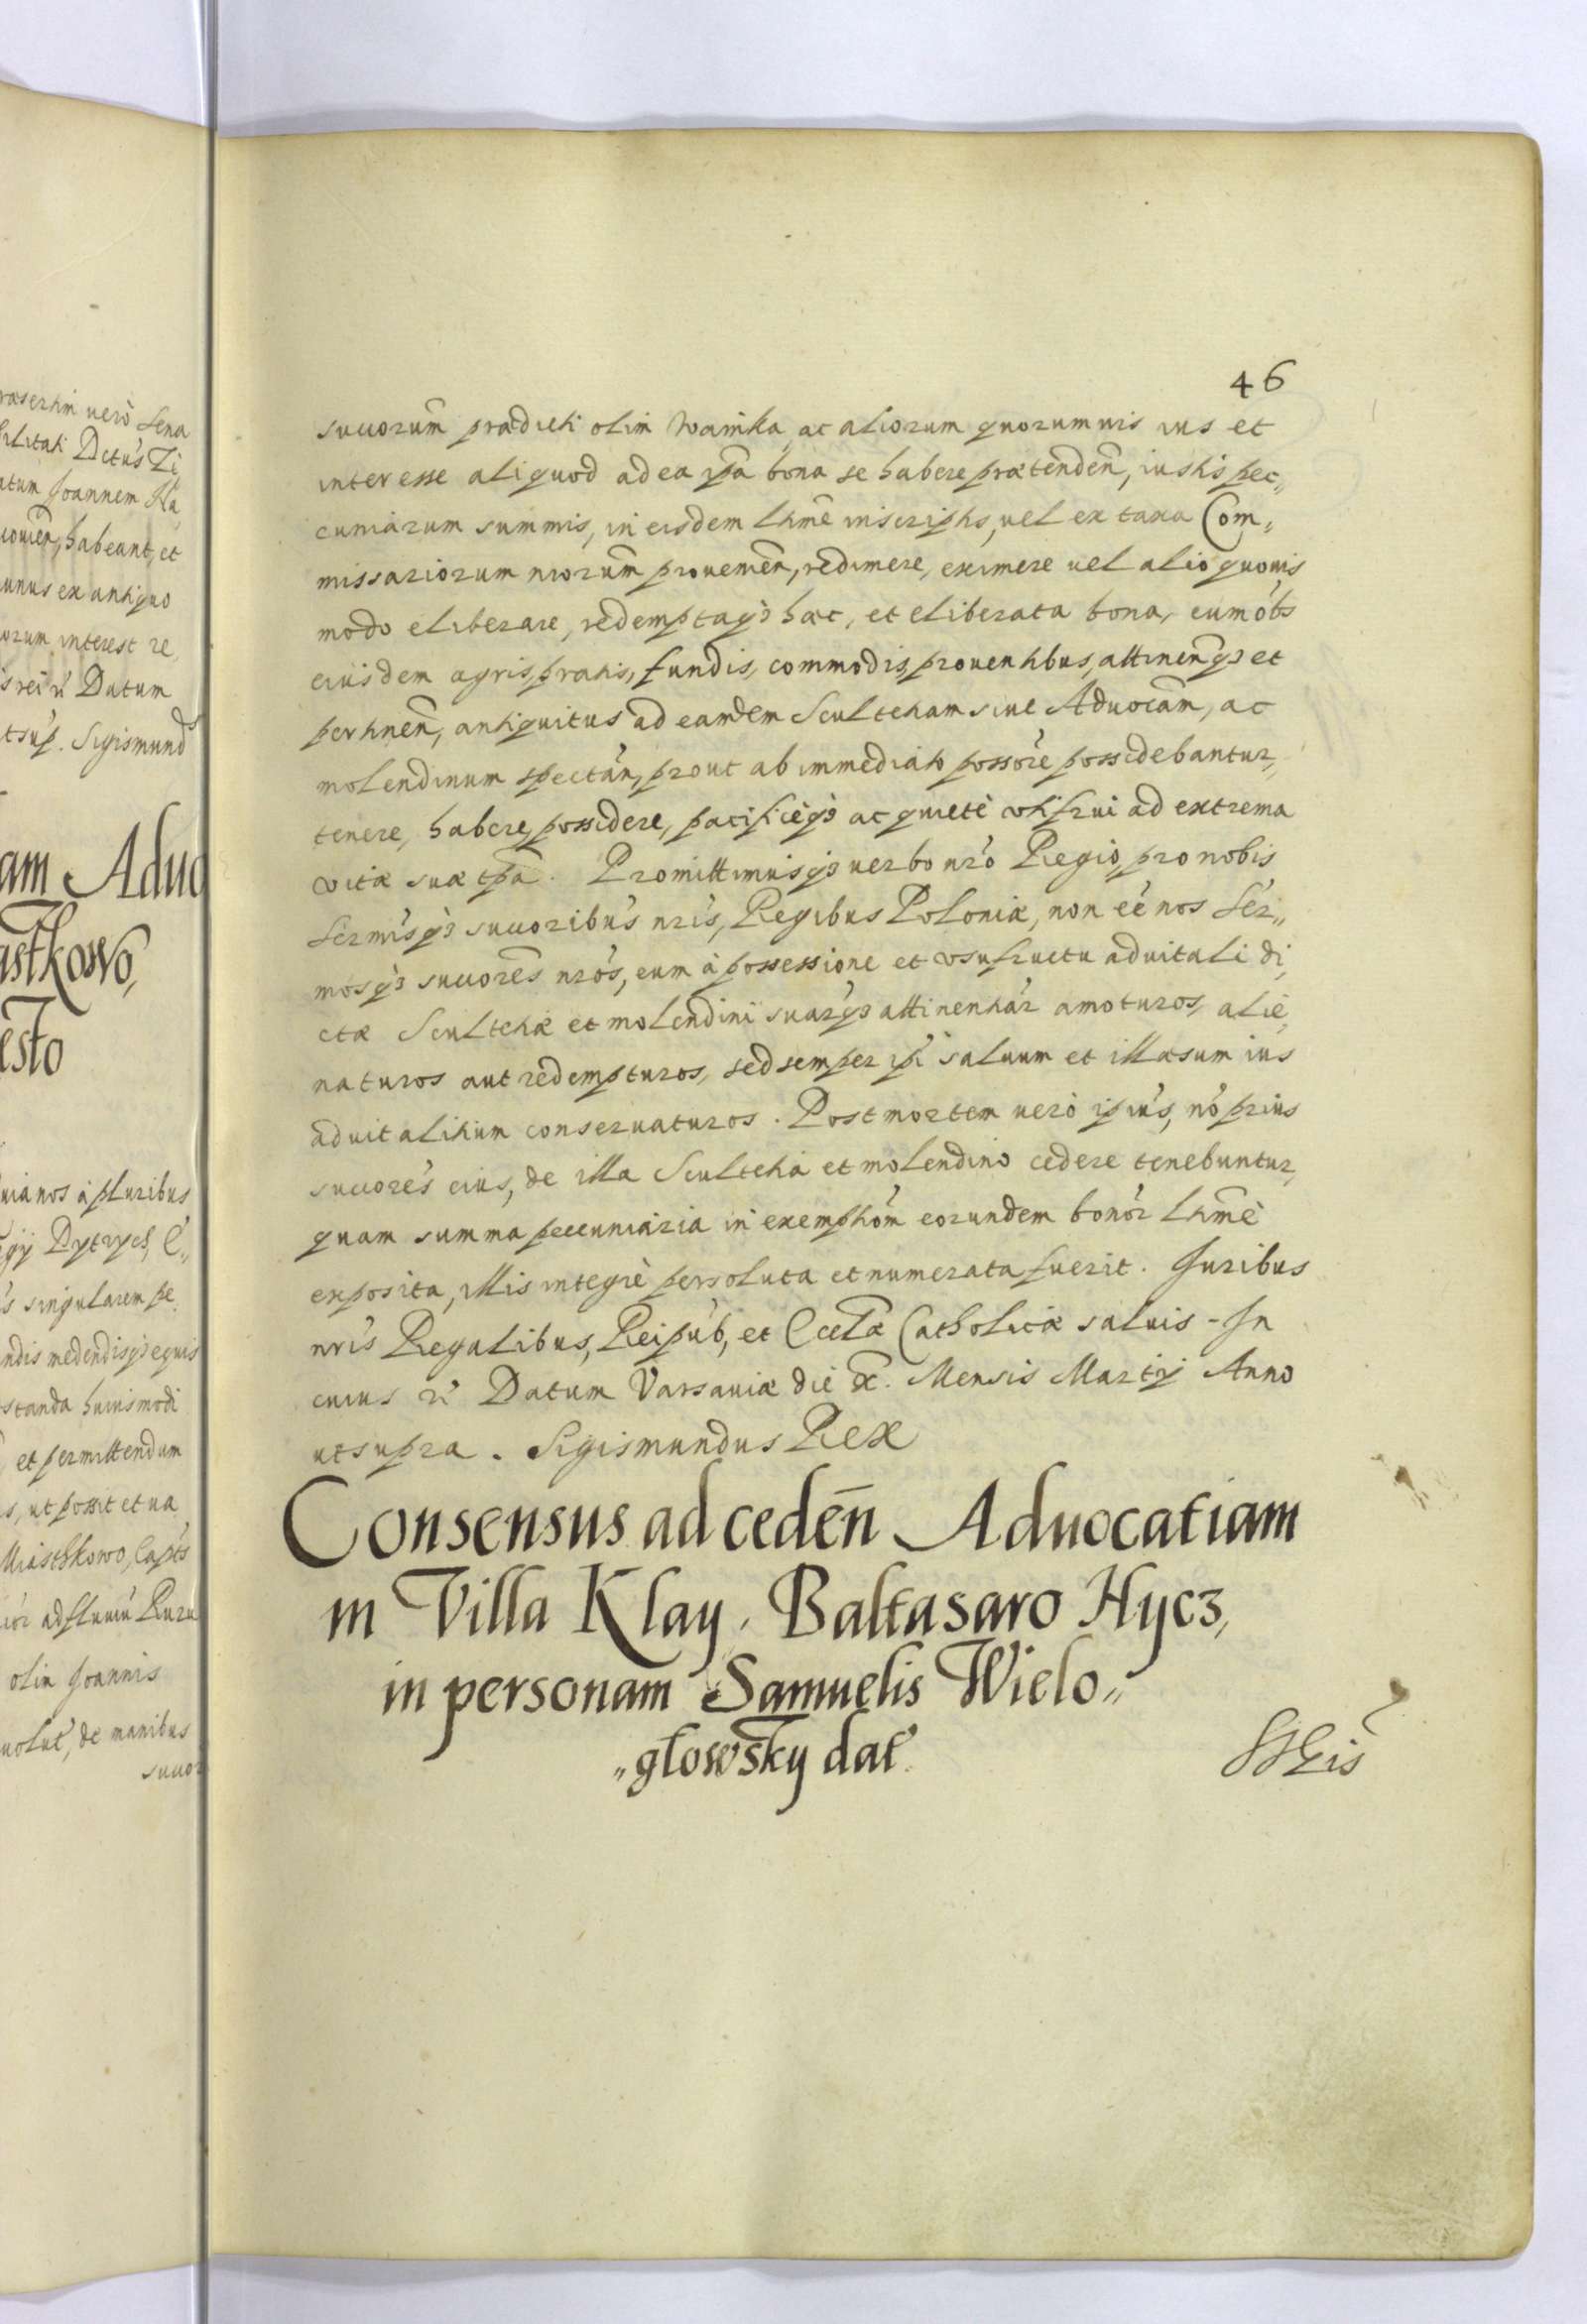 raesertim verò Sena
bilitati Dctus Zi
atum Joannem Ha
habeant, et
unus ex antiquo
orum interest re
is rei ñ Datum
utsup. Sigismund9
am Aduo
astkowo,
esto
uia nos à pluribus
egij Dytrych, C„
s singularem pe
ndis medendisq3 equis
standa huiusmodi
et permittendum
s, ut possit et va
Miastkowo, Capts
ior ad fluuiũ Ruzu
olim Joannis
uolut, de manibus
succor
46
succorum̃ praedicti olim Wainka, ac aliorum quorumuis ius et
interesse aliquod ad ea ipã bona se habere praetendeñ, iustis pec„
cuniarum summis, in eisdem lhme inscriptis, uel ex taxa Com„
missariorum nrorum̃ proueniẽn, redimere, eximere uel alio quouis
modo eliberare, redemptaq3 haec, et eliberata bona, cum oĩbs
eiusdem agris, pratis, fundis, commodis, prouentibus, attineñq3 et
pertineñ, antiquitus ad eamdem Scultetiam siue Aduocãm, ac
molendinum spectãn, prout ab immediato possore possidebantur,
tenere, habere, possidere, pacificèq3 ac quietè vtifrui ad extrema
vitae suae tpã. Promittimusq3 verbo nro Regio, pro nobis
Sermisq3 succoribus nris, Regibus Poloniae, non eè nos Ser„
mosq3 succores nros, eum à possessione et vsufructu aduitali di„
ctae Scultetiae et molendini suarq3 attinentiar amoturos, alie„
naturos aut redempturos, sed semper ipi saluum et illaesum ius
aduitalitium conseruaturos. Post mortem uerò ipius, nõ prius
succores eius, de illa Scultetia et molendino cedere tenebuntur,
quam summa peccuniaria in exemptiõm eorundem bonor lhme
exposita, illis integrè persoluta et numerata fuerit. Juribus
nris Regalibus, Reipub, et Eccłae Catholicae saluis - In
cuius rei Datum Varsauiae die X. Mensis Martij Anno
utsupra. Sigismundus Rex
Consensus ad cedeñ Aduocatiam
in Villa Klay, Baltasaro Hycz,
in personam Samuelis Wielo„
„głowsky dat